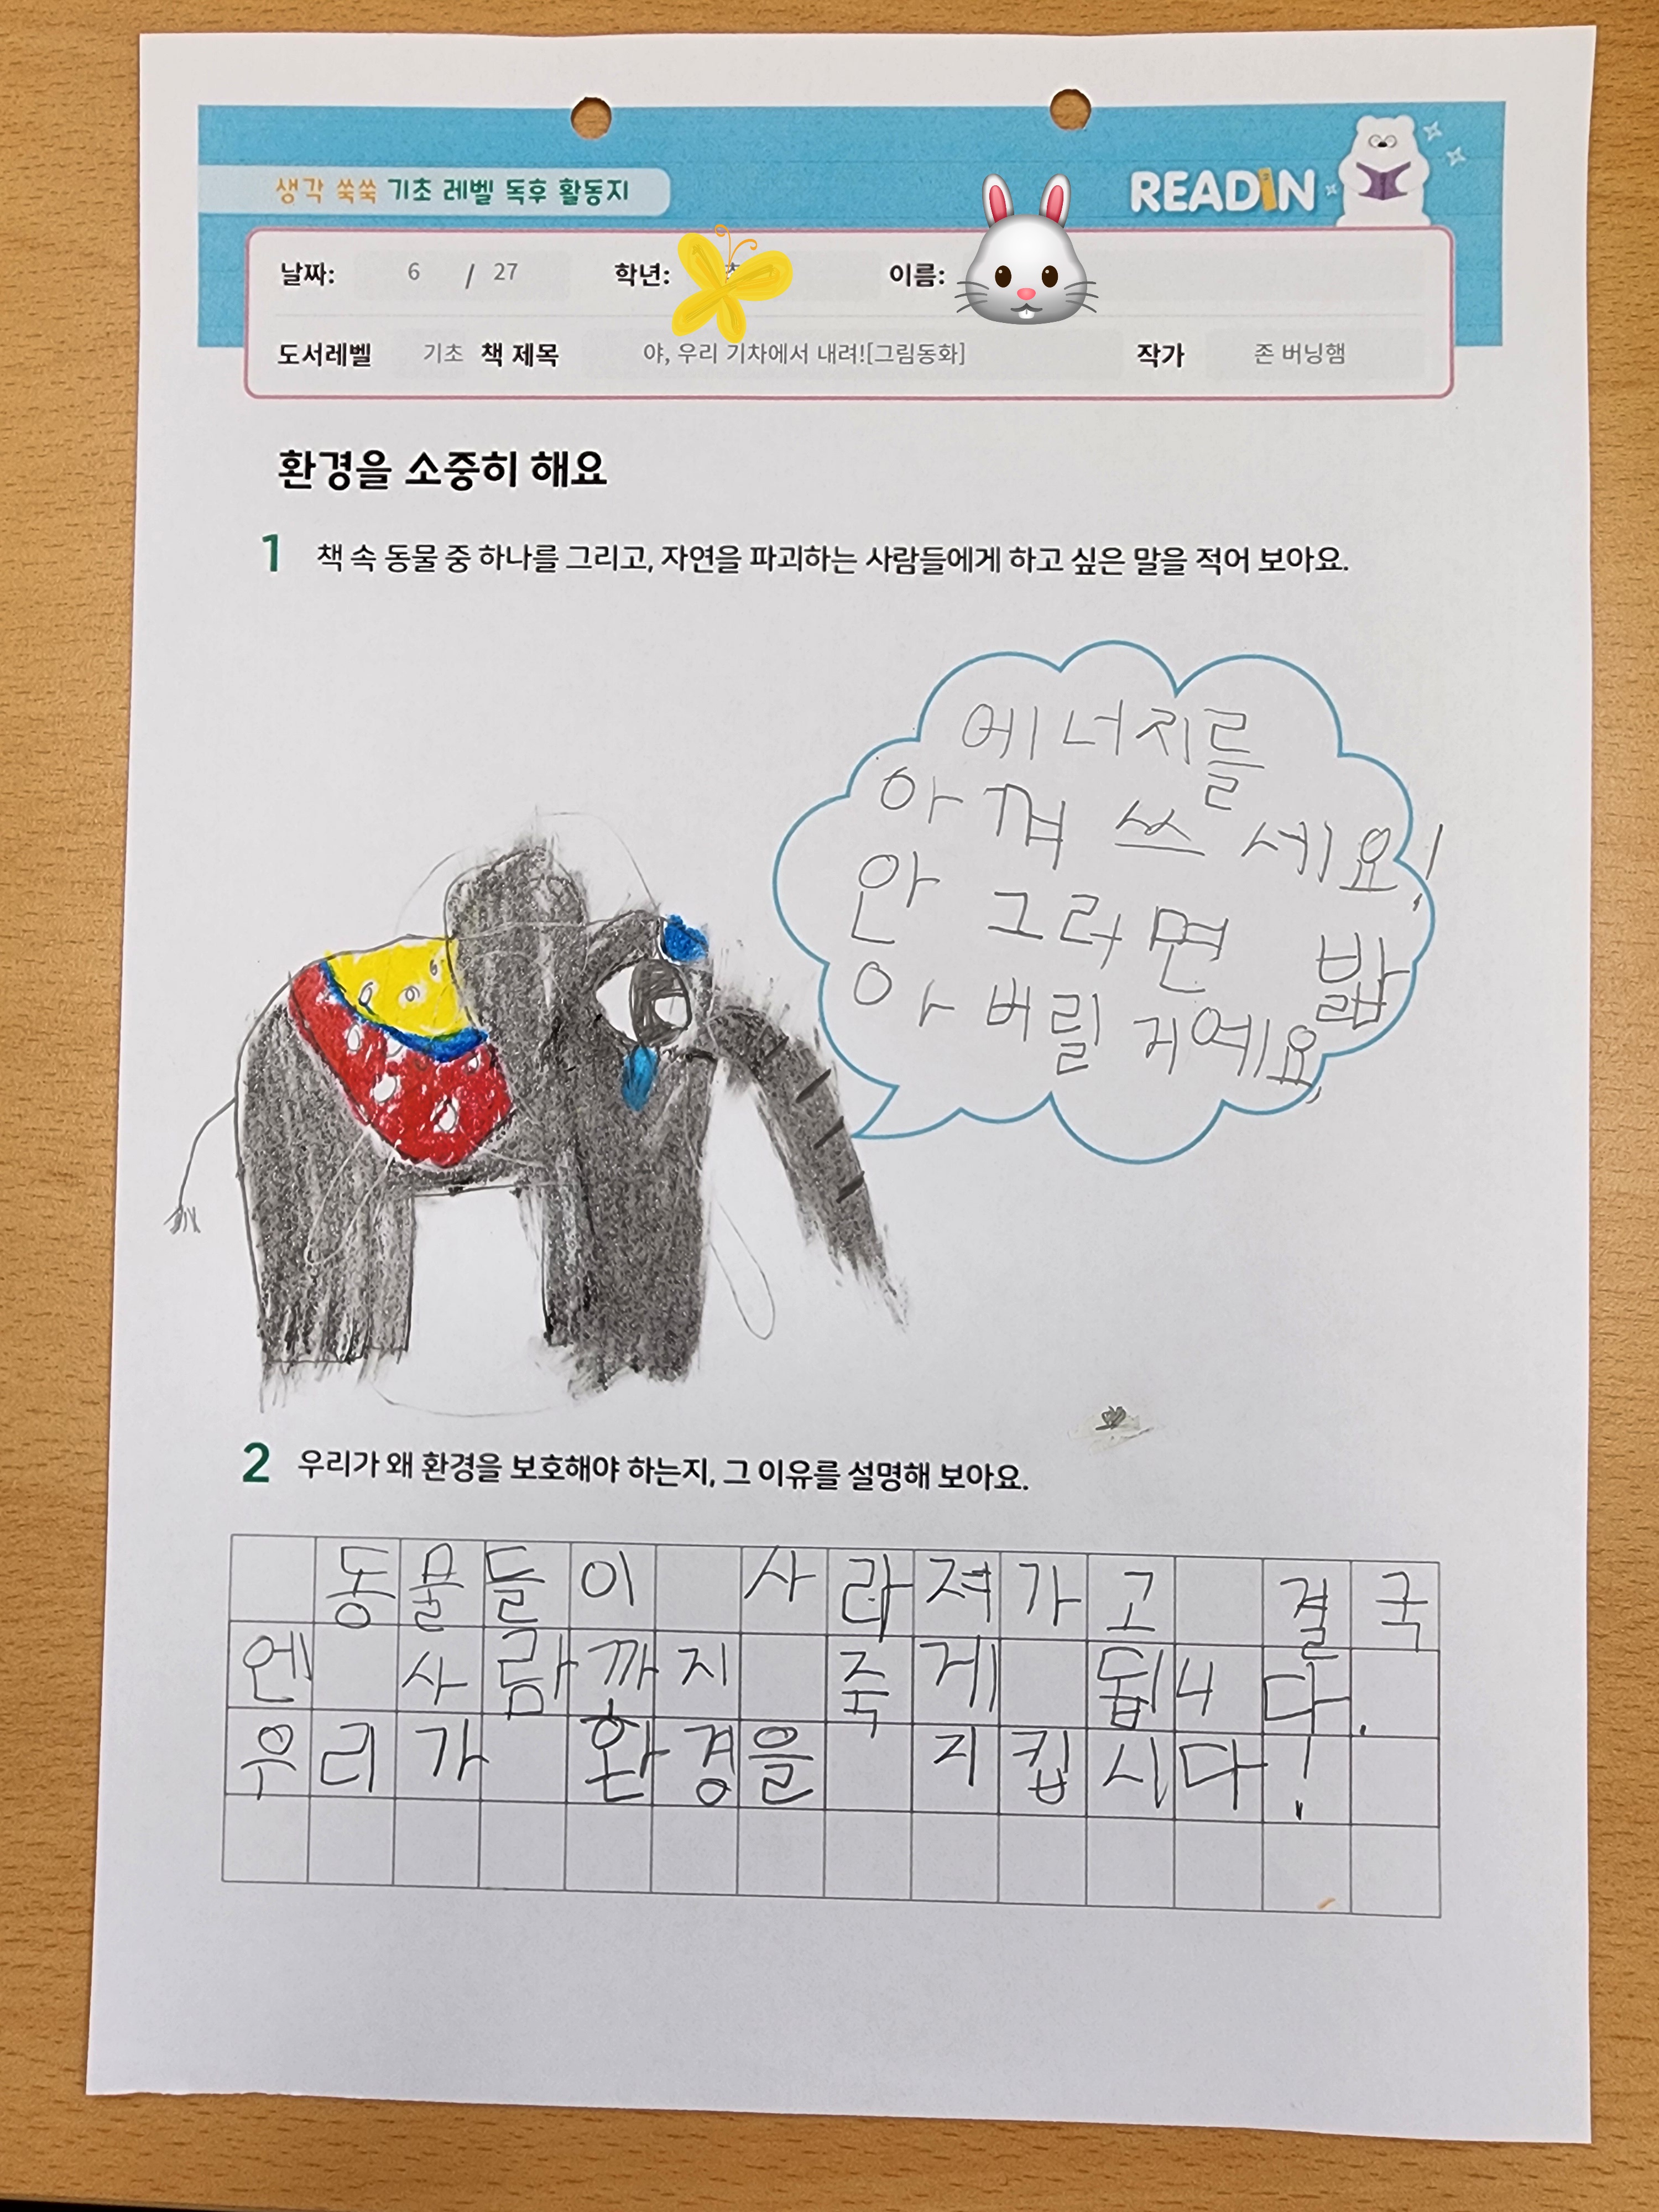 생각 쑥쑥 기초 레벨 독후 활동지
READIN
날짜: 6 / 27 학년: 이름:
도서레벨 기초 책 제목 야, 우리 기차에서 내려![그림동화] 작가 존 버닝햄
환경을 소중히 해요
1 책 속 동물 중 하나를 그리고, 자연을 파괴하는 사람들에게 하고 싶은 말을 적어 보아요.
에너지를
아껴 쓰세요!
안 그러면 밟
아 버릴 거예요.
2 우리가 왜 환경을 보호해야 하는지, 그 이유를 설명해 보아요.
동물들이 사라져가고 결국
엔 사람까지 죽게 됩니다.
우리가 환경을 지킵시다!